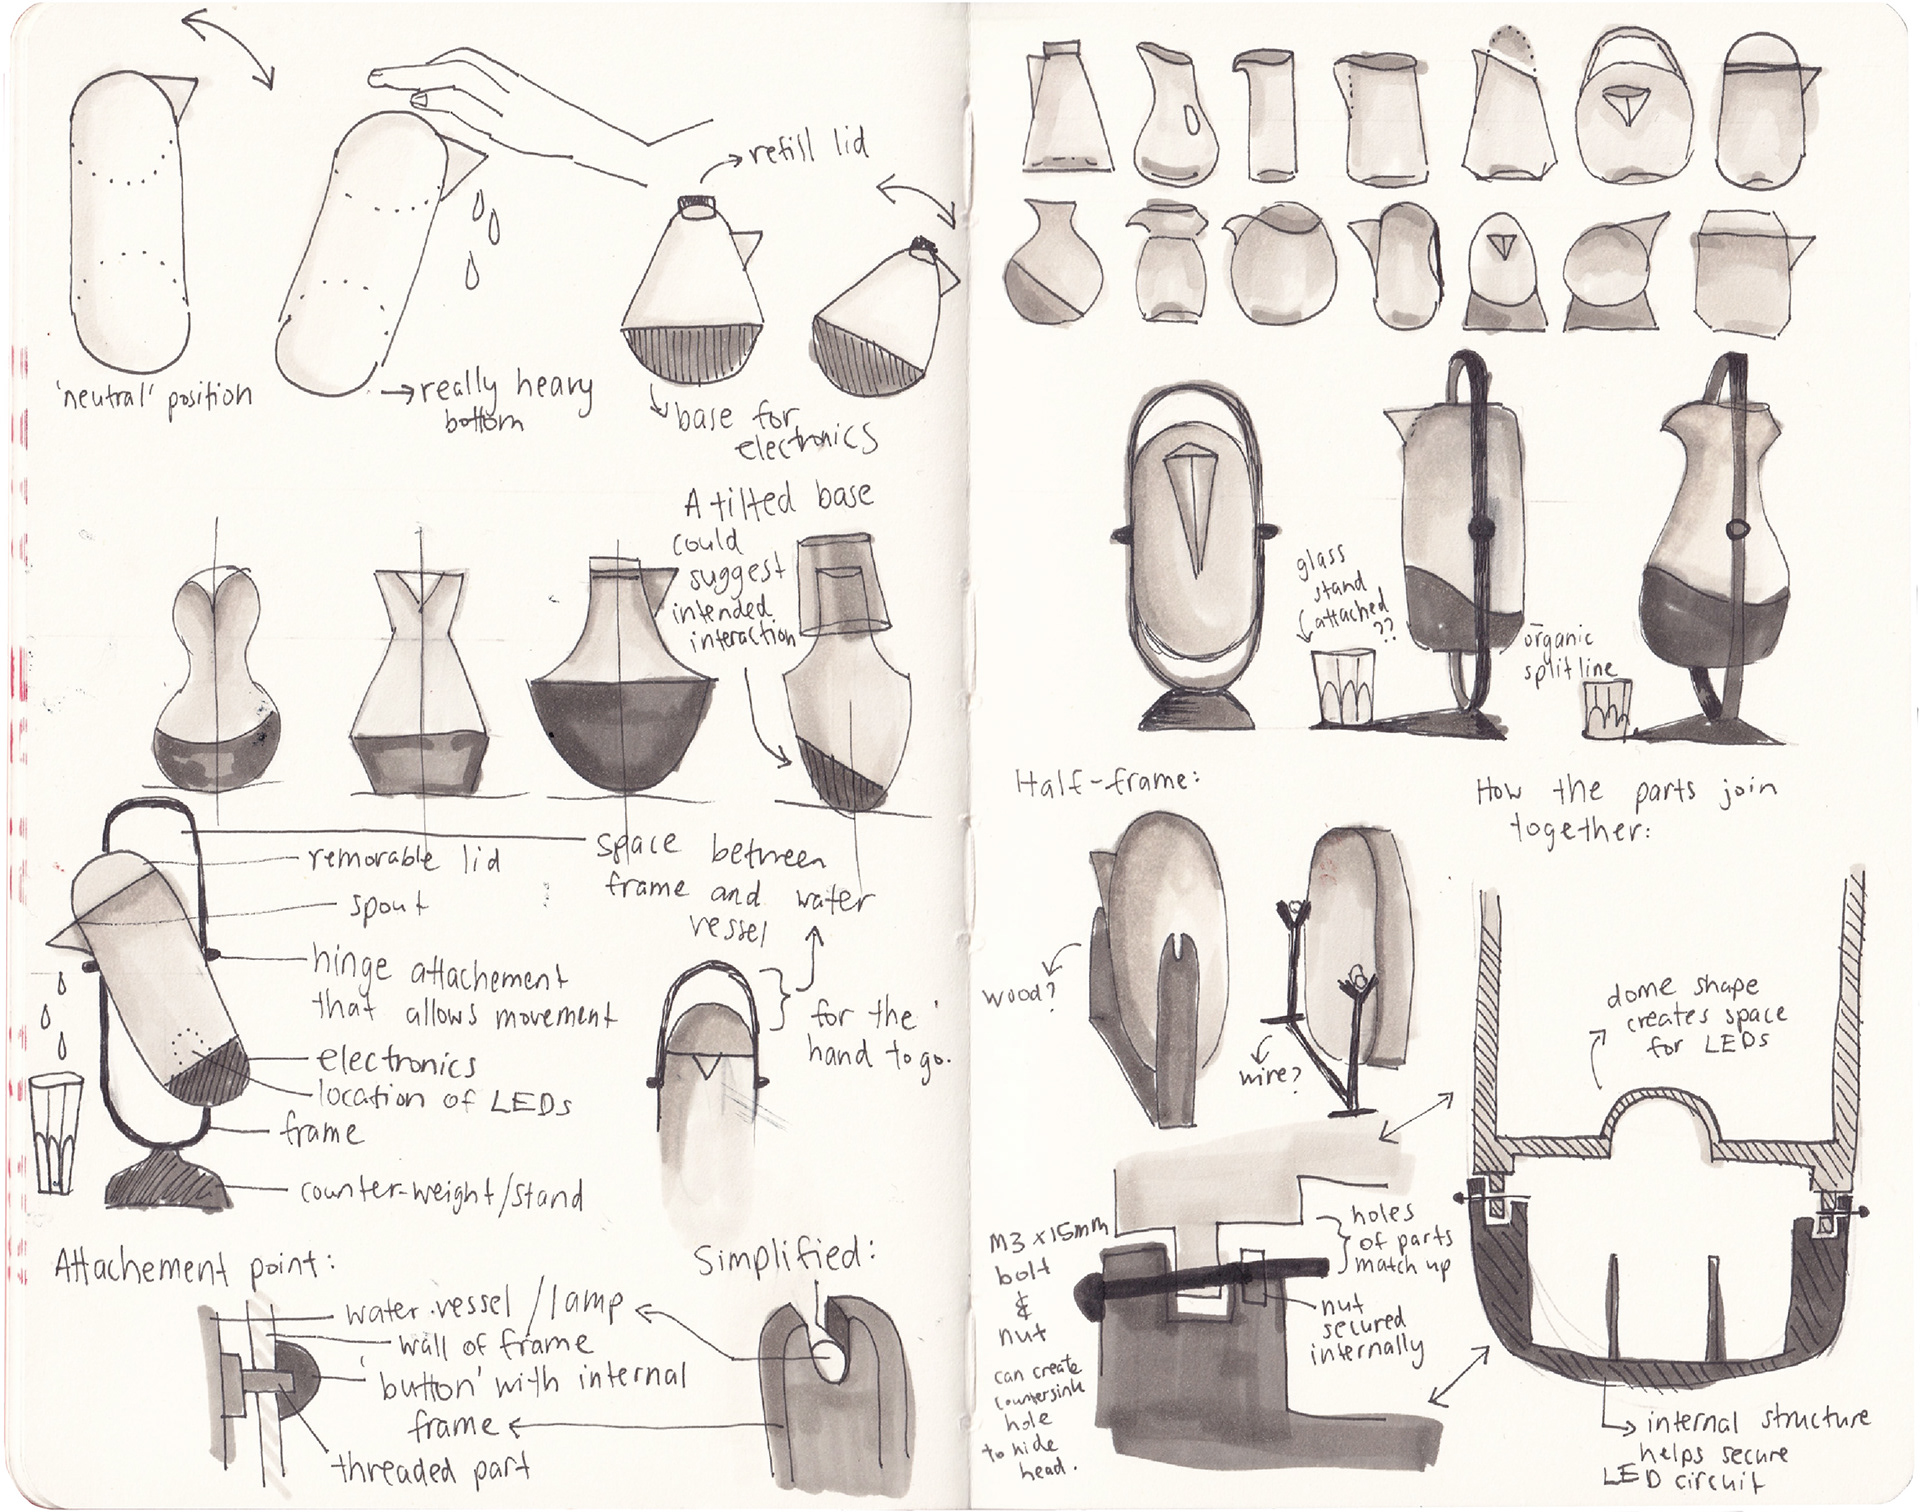 refill lid
'neutral' position
really heavy
bottom
base for
electronics
A tilted base
could
suggest
intended
interaction
removable lid
spout
hinge attachement
that allows movement
electronics
location of LEDs
frame
counter-weight/stand
space between
frame and water
vessel
for the
hand to go.
Attachement point:
water vessel/lamp
wall of frame
'button' with internal
frame
threaded part
Simplified:
glass
stand
attached
??
organic
split line
Half-frame:
wood?
wire?
How the parts join
together:
dome shape
creates space
for LEDs
M3 x 15mm
bolt
&
nut
can create
countersink
hole
to hide
head.
holes
of parts
match up
nut
secured
internally
internal structure
helps secure
LED circuit